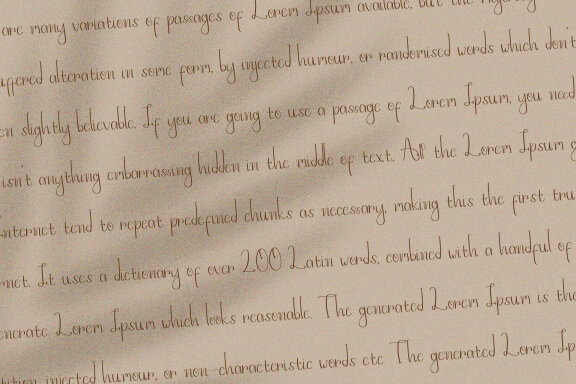 are many variations of passages of Lorem Ipsum available, but the
uffered alteration in some form, by injected humour, or randomised words which don't
en slightly believable. If you are going to use a passage of Lorem Ipsum, you need
isn't anything embarrassing hidden in the middle of text. All the Lorem Ipsum g
nternet tend to repeat predefined chunks as necessary, making this the first tru
rnet. It uses a dictionary of over 200 Latin words, combined with a handful of
enerate Lorem Ipsum which looks reasonable. The generated Lorem Ipsum is the
tition injected humour, or non-characteristic words etc The generated Lorem Ip